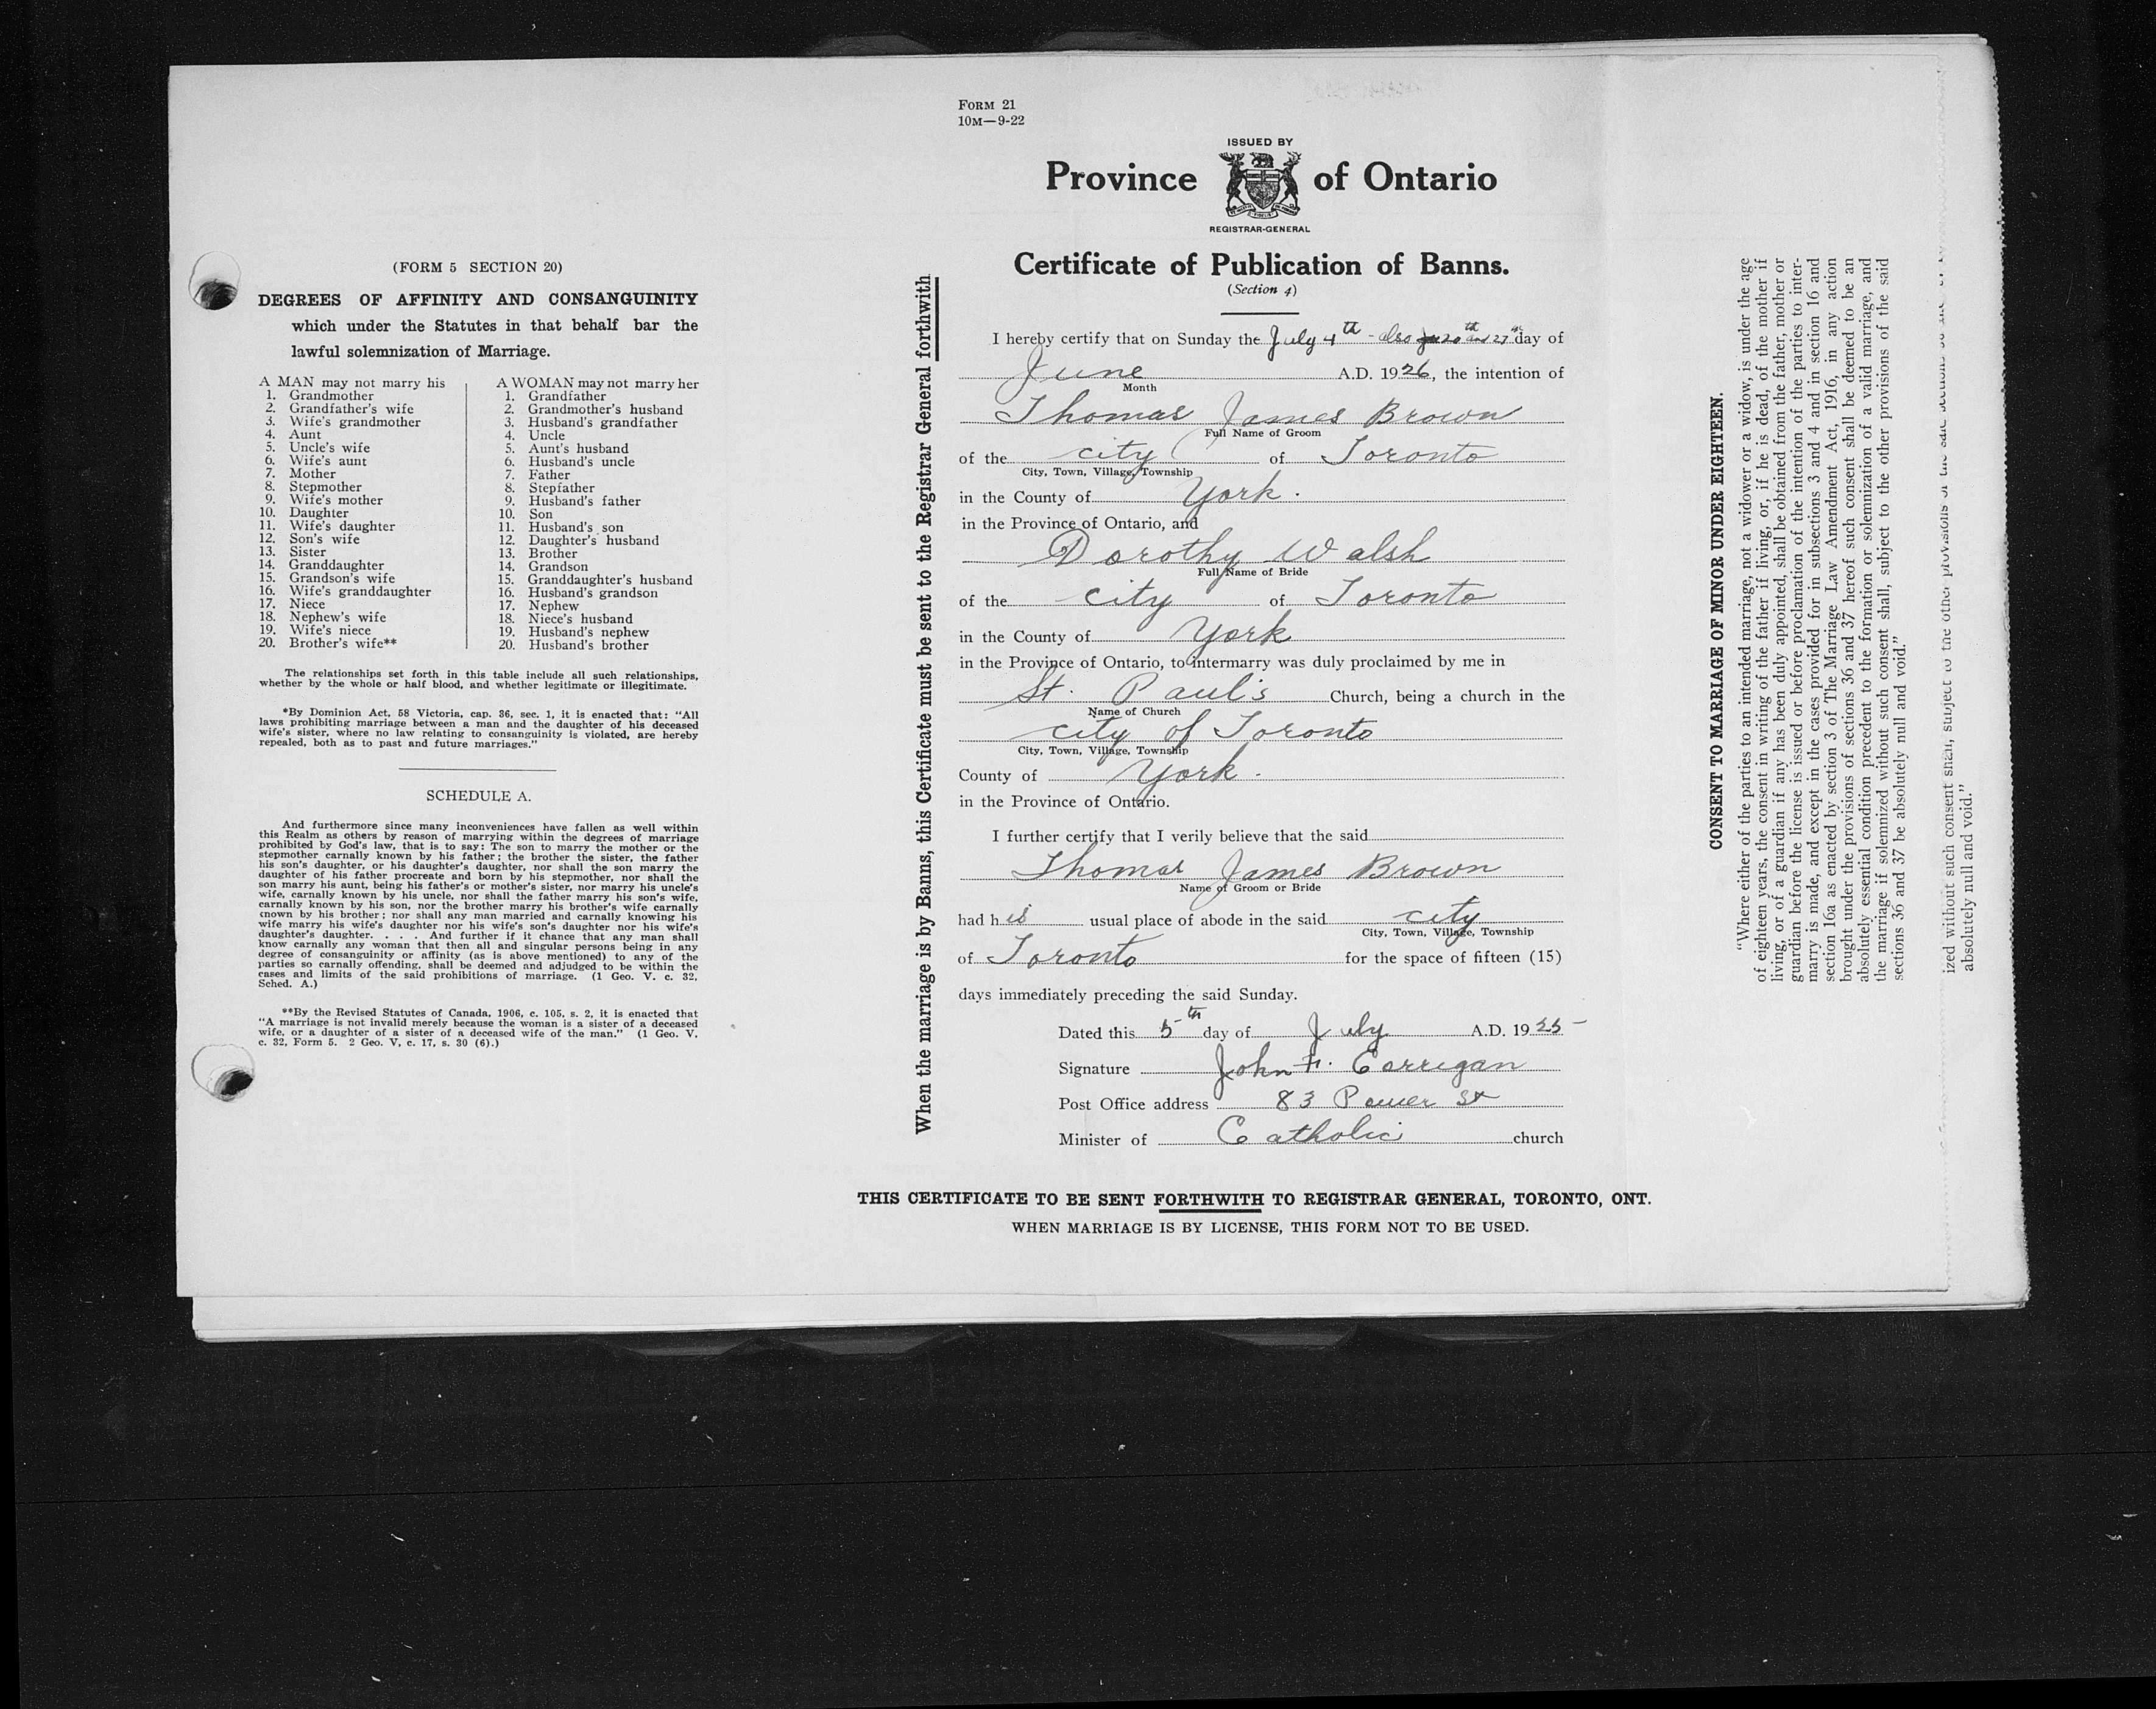 (FORM 5 SECTION 20)
DEGREES OF AFFINITY AND CONSANGUINITY
which under the Statutes in that behalf bar the
lawful solemnization of Marriage.
A MAN may not marry his
1. Grandmother
2. Grandfather's wife
3. Wife's grandmother
4. Aunt
5. Uncle's wife
6. Wife's aunt
7. Mother
8. Stepmother
9. Wife's mother
10. Daughter
11. Wife's daughter
12. Son's wife
13. Sister
14. Granddaughter
15. Grandson's wife
16. Wife's granddaughter
17. Niece
18. Nephew's wife
19. Wife's niece
20. Brother's wife**
A WOMAN may not marry her
1. Grandfather
2. Grandmother's husband
3. Husband's grandfather
4. Uncle
5. Aunt's husband
6. Husband's uncle
7. Father
8. Stepfather
9. Husband's father
10. Son
11. Husband's son
12. Daughter's husband
13. Brother
14. Grandson
15. Granddaughter's husband
16. Husband's grandson
17. Nephew
18. Niece's husband
19. Husband's nephew
20. Husband's brother
The relationships set forth in this table include all such relationships,
whether by the whole or half blood, and whether legitimate or illegitimate.
*By Dominion Act, 58 Victoria, cap. 36, sec. 1, it is enacted that: "All
laws prohibiting marriage between a man and the daughter of his deceased
wife's sister, where no law relating to consanguinity is violated, are hereby
repealed, both as to past and future marriages."
SCHEDULE A.
And furthermore since many inconveniences have fallen as well within
this Realm as others by reason of marrying within the degrees of marriage
prohibited by God's law, that is to say: The son to marry the mother or the
stepmother carnally known by his father; the brother the sister, the father
his son's daughter, or his daughter's daughter, nor shall the son marry the
daughter of his father procreate and born by his stepmother, nor shall the
son marry his aunt, being his father's or mother's sister, nor marry his uncle's
wife, carnally known by his uncle, nor shall the father marry his son's wife,
carnally known by his son, nor the brother marry his brother's wife carnally
known by his brother; nor shall any man married and carnally knowing his
wife marry his wife's daughter nor his wife's son's daughter nor his wife's
daughter's daughter. . . . And further if it chance that any man shall
know carnally any woman that then all and singular persons being in any
degree of consanguinity or affinity (as is above mentioned) to any of the
parties so carnally offending, shall be deemed and adjudged to be within the
cases and limits of the said prohibitions of marriage. (1 Geo. V. c. 32,
Sched. A.)
**By the Revised Statutes of Canada, 1906, c. 105, s. 2, it is enacted that
"A marriage is not invalid merely because the woman is a sister of a deceased
wife, or a daughter of a sister of a deceased wife of the man." (1 Geo. V,
c. 32, Form 5. 2 Geo. V, c. 17, s. 30 (6).)
When the marriage is by Banns, this Certificate must be sent to the Registrar General forthwith
FORM 21
10M—9-22
ISSUED BY
Province of Ontario
REGISTRAR-GENERAL
Certificate of Publication of Banns.
(Section 4)
I hereby certify that on Sunday the July 4th - also 20th and 27th day of
June A.D. 1926, the intention of
Month
Thomas James Brown
Full Name of Groom
of the city of Toronto
City, Town, Village, Township
in the County of York.
in the Province of Ontario, and
Dorothy Walsh
Full Name of Bride
of the city of Toronto
in the County of York
in the Province of Ontario, to intermarry was duly proclaimed by me in
St. Paul's Church, being a church in the
Name of Church
city of Toronto
City, Town, Village, Township
County of York.
in the Province of Ontario.
I further certify that I verily believe that the said
Thomas James Brown
Name of Groom or Bride
had his usual place of abode in the said city
City, Town, Village, Township
of Toronto for the space of fifteen (15)
days immediately preceding the said Sunday.
Dated this 5th day of July A.D. 1925
Signature John F. Corrigan
Post Office address 83 Power St
Minister of Catholic church
THIS CERTIFICATE TO BE SENT FORTHWITH TO REGISTRAR GENERAL, TORONTO, ONT.
WHEN MARRIAGE IS BY LICENSE, THIS FORM NOT TO BE USED.
CONSENT TO MARRIAGE OF MINOR UNDER EIGHTEEN.
"Where either of the parties to an intended marriage, not a widower or a widow, is under the age
of eighteen years, the consent in writing of the father if living, or, if he is dead, of the mother if
living, or of a guardian if any has been duly appointed, shall be obtained from the father, mother or
guardian before the license is issued or before proclamation of the intention of the parties to inter-
marry is made, and except in the cases provided for in subsections 3 and 4 and in section 16 and
section 16a as enacted by section 3 of The Marriage Law Amendment Act, 1916, in any action
brought under the provisions of sections 36 and 37 hereof such consent shall be deemed to be an
absolutely essential condition precedent to the formation or solemnization of a valid marriage, and
the marriage if solemnized without such consent shall, subject to the other provisions of the said
sections 36 and 37 be absolutely null and void."
ized without such consent shall, subject to the other provisions of the said sections
absolutely null and void."